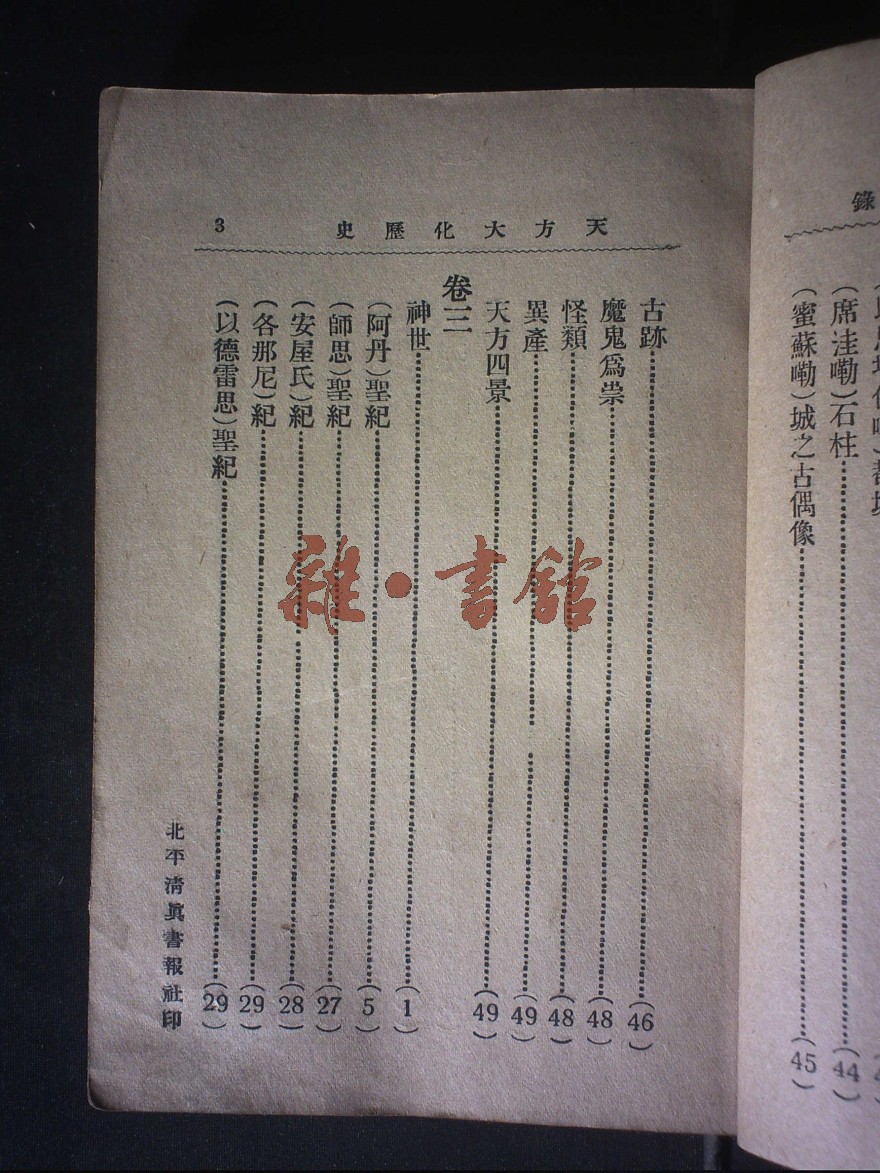 錄
(席洼嘞)石柱……(44)
(蜜蘇嘞)城之古偶像……(45)
天方大化歷史 3
古跡……(46)
魔鬼爲祟……(48)
怪類……(48)
異產……(49)
天方四景……(49)
卷三
神世……(1)
(阿丹)聖紀……(5)
(師思)聖紀……(27)
(安屋氏)紀……(28)
(各那尼)紀……(29)
(以德雷思)聖紀……(29)
北平清眞書報社印
雜·書館